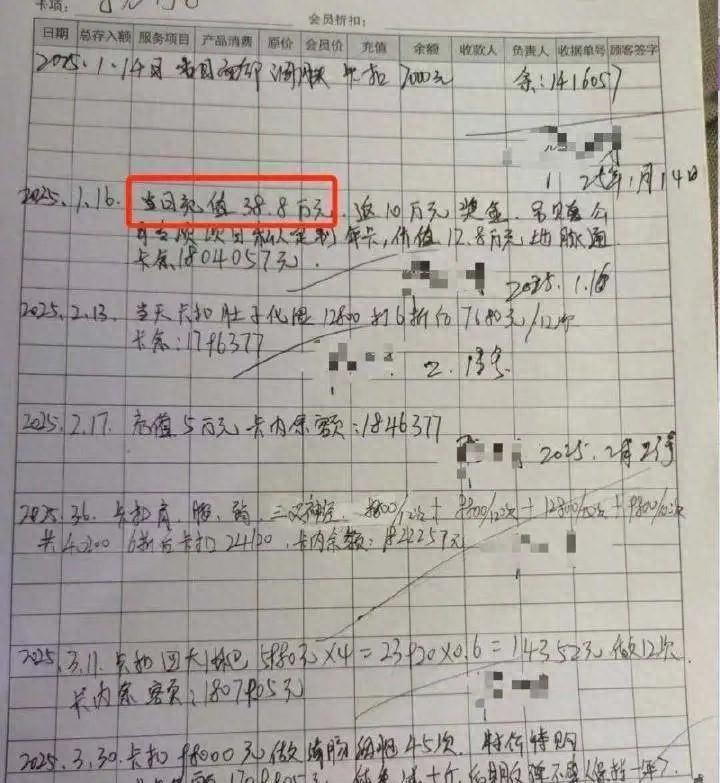 卡项:
会员折扣:
日期 总存入额 服务项目 产品消费 原价 会员价 充值 余额 收款人 负责人 收据单号 顾客签字
2025.1.14日 当日 卡扣 7000元 余:1416057
25年1月14日
2025.1.16. 当日充值38.8万元.返10万元奖金.另赠公
司全项次日私人定制年卡,价值12.8万元
卡余1804057元.
2025.1.16
2025.2.13. 当天卡扣肚子 12800打6折后7680元/12次
卡余:1796377
2.13号
2025.2.17. 充值5万元 卡内余额:1846377
2025.2月23号
2025.3.6. 卡扣肩、腰、 三叉神经. 9800/12次+9800/12次+12800/10次+9800/10次
共40200 6折后卡扣24120.卡内余额:1822257元
2025.3.11.卡扣四大淋巴 5980元×4=23920×0.6=14352元 做12次.
卡内余额:1807905元
2025.3.30.卡扣98000元做 45次. 特价特购